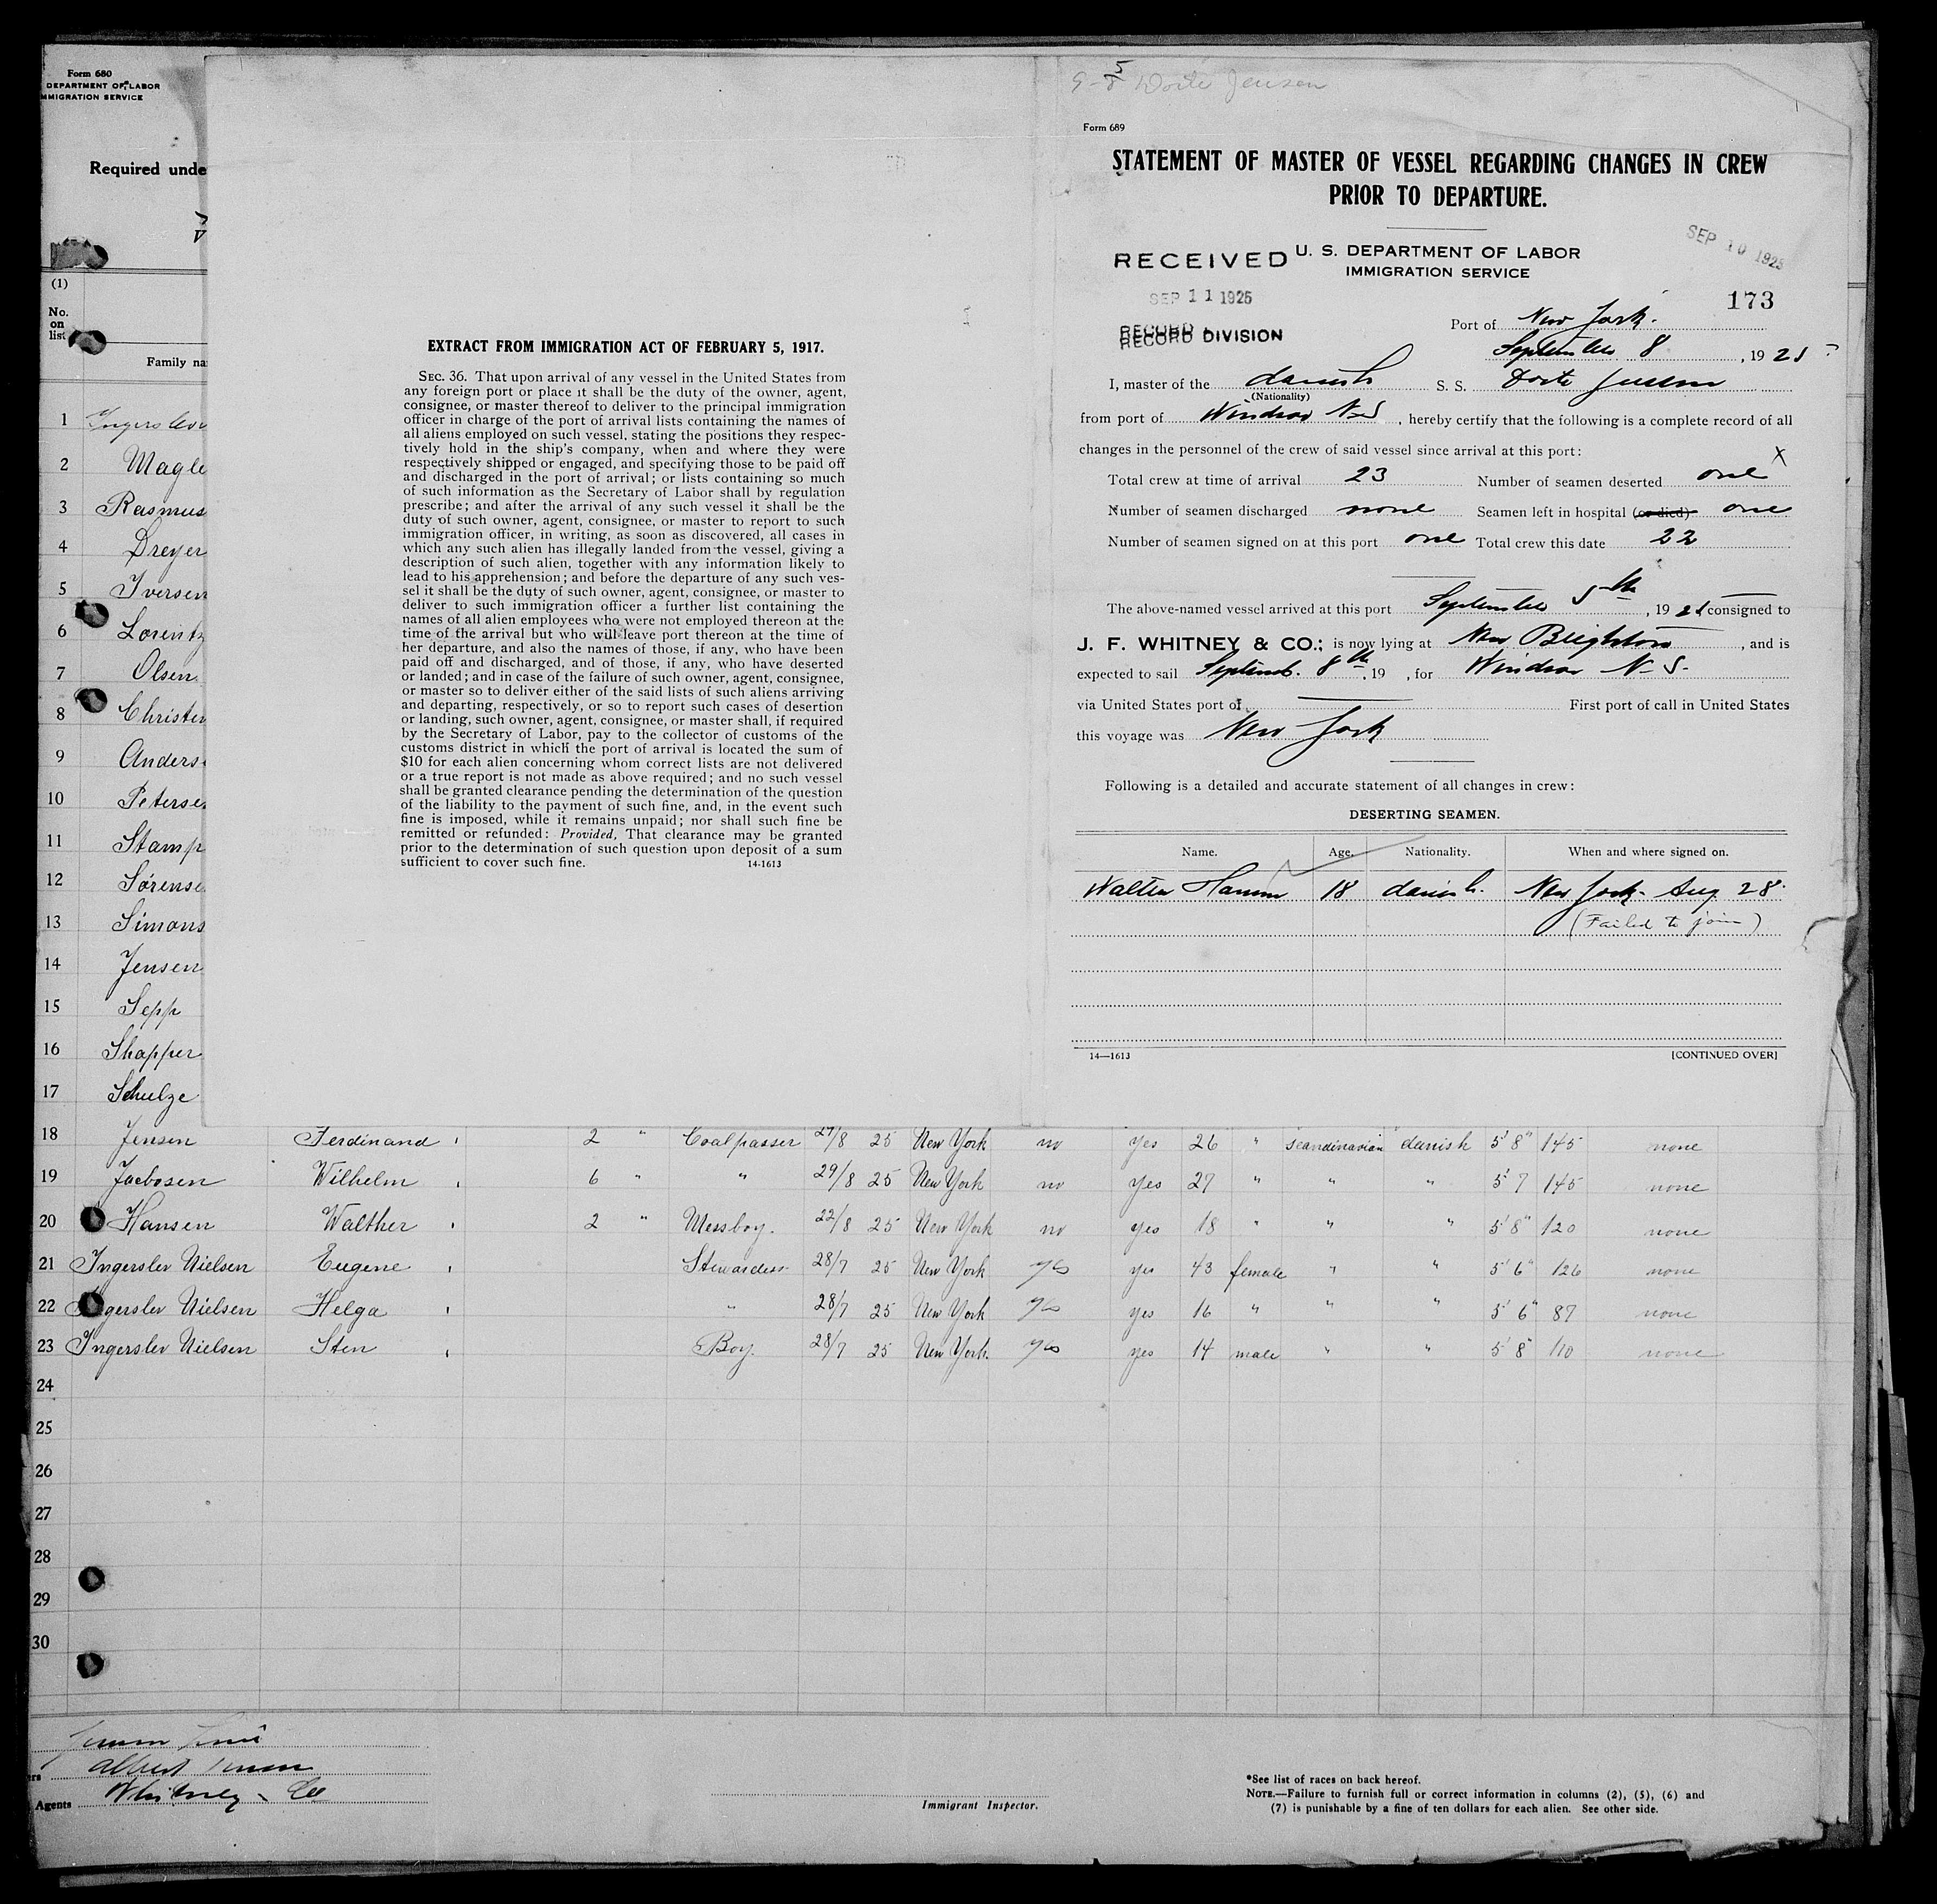 Form 680
DEPARTMENT OF LABOR
IMMIGRATION SERVICE
Required unde
(1)
No.
on
list
Family na
1
2 Magle
3 Rasmus
4 Dreyer
5 Iversen
6 Lorentz
7 Olsen
8 Christen
9 Anders
10 Peterse
11 Stamp
12 Sørense
13 Simons
14 Jensen
15 Sepp
16 Shapper
17 Schulze
EXTRACT FROM IMMIGRATION ACT OF FEBRUARY 5, 1917.
SEC. 36. That upon arrival of any vessel in the United States from
any foreign port or place it shall be the duty of the owner, agent,
consignee, or master thereof to deliver to the principal immigration
officer in charge of the port of arrival lists containing the names of
all aliens employed on such vessel, stating the positions they respec-
tively hold in the ship's company, when and where they were
respectively shipped or engaged, and specifying those to be paid off
and discharged in the port of arrival; or lists containing so much
of such information as the Secretary of Labor shall by regulation
prescribe; and after the arrival of any such vessel it shall be the
duty of such owner, agent, consignee, or master to report to such
immigration officer, in writing, as soon as discovered, all cases in
which any such alien has illegally landed from the vessel, giving a
description of such alien, together with any information likely to
lead to his apprehension; and before the departure of any such ves-
sel it shall be the duty of such owner, agent, consignee, or master to
deliver to such immigration officer a further list containing the
names of all alien employees who were not employed thereon at the
time of the arrival but who will leave port thereon at the time of
her departure, and also the names of those, if any, who have been
paid off and discharged, and of those, if any, who have deserted
or landed; and in case of the failure of such owner, agent, consignee,
or master so to deliver either of the said lists of such aliens arriving
and departing, respectively, or so to report such cases of desertion
or landing, such owner, agent, consignee, or master shall, if required
by the Secretary of Labor, pay to the collector of customs of the
customs district in which the port of arrival is located the sum of
$10 for each alien concerning whom correct lists are not delivered
or a true report is not made as above required; and no such vessel
shall be granted clearance pending the determination of the question
of the liability to the payment of such fine, and, in the event such
fine is imposed, while it remains unpaid; nor shall such fine be
remitted or refunded: Provided, That clearance may be granted
prior to the determination of such question upon deposit of a sum
sufficient to cover such fine. 14-1613
Dorte Jensen
Form 689
STATEMENT OF MASTER OF VESSEL REGARDING CHANGES IN CREW
PRIOR TO DEPARTURE.
SEP 10 1925
RECEIVED U. S. DEPARTMENT OF LABOR
IMMIGRATION SERVICE
SEP 11 1925
173
RECORD DIVISION
Port of New York.
September 8, 1925
I, master of the danish S. S. Dorte Jensen
(Nationality)
from port of Windsor N.S, hereby certify that the following is a complete record of all
changes in the personnel of the crew of said vessel since arrival at this port:
Total crew at time of arrival 23 Number of seamen deserted one x
Number of seamen discharged none Seamen left in hospital (or died) one
Number of seamen signed on at this port one Total crew this date 22
The above-named vessel arrived at this port September 5th, 1925 consigned to
J. F. WHITNEY & CO.; is now lying at New Brighton, and is
expected to sail Septemb. 8th, 19 , for Windsor N.S.
via United States port of First port of call in United States
this voyage was New York
Following is a detailed and accurate statement of all changes in crew:
DESERTING SEAMEN.
Name. Age. Nationality. When and where signed on.
Walter Hansen 18 danish. New York- Aug 28.
(Failed to join)
14—1613 [CONTINUED OVER]
18 Jensen Ferdinand 2 " Coalpasser 29/8 25 New York no yes 26 " scandinavian danish 5' 8" 145 none
19 Jacbosen Wilhelm 6 " " 29/8 25 New York no yes 27 " " " 5' 7 145 none
20 Hansen Walther 2 " Messboy. 22/8 25 New York no yes 18 " " " 5' 8" 120 none
21 Ingerslev Nielsen Eugene Stewardess 28/7 25 New York yes yes 43 female " " 5' 6" 126 none
22 Ingerslev Nielsen Helga " 28/7 25 New York yes yes 16 " " " 5' 6" 87 none
23 Ingerslev Nielsen Sten Boy. 28/7 25 New York. yes yes 14 male " " 5' 8" 110 none
24
25
26
27
28
29
30
ers
Agents Whitney & Co
Immigrant Inspector.
*See list of races on back hereof.
NOTE.—Failure to furnish full or correct information in columns (2), (5), (6) and
(7) is punishable by a fine of ten dollars for each alien. See other side.